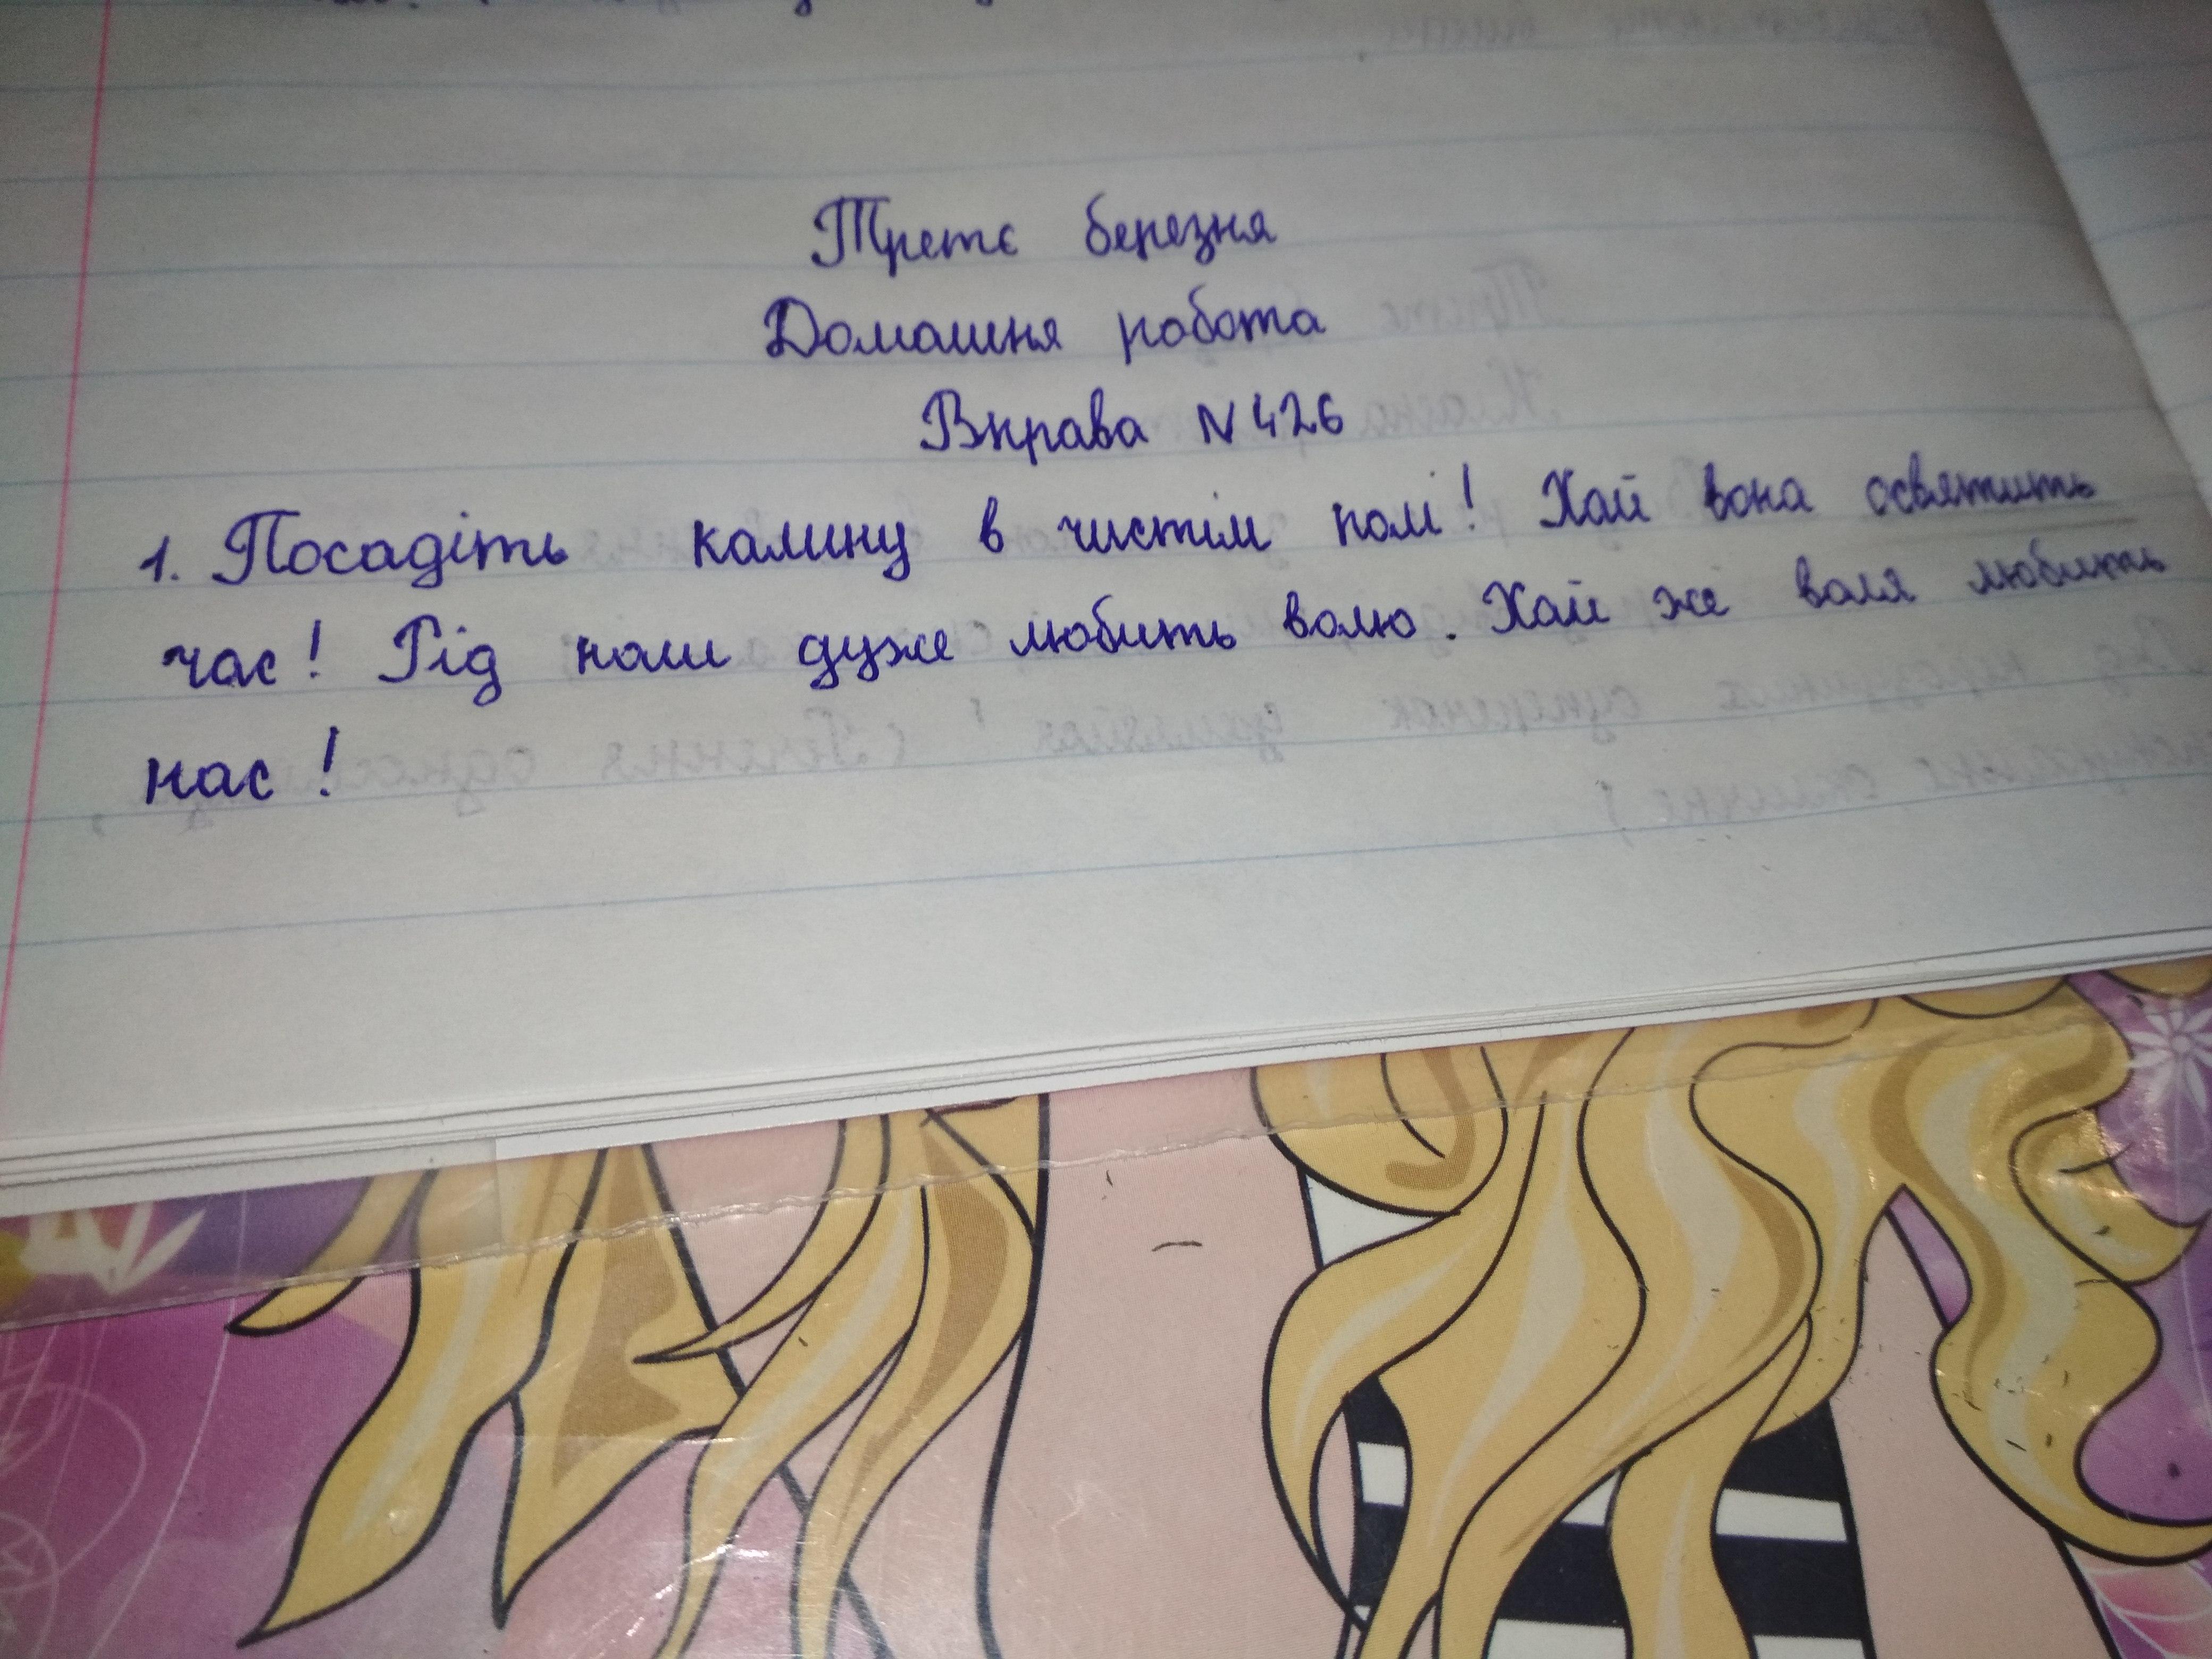 Третє березня
Домашня робота
Вправа N 426
1. Посадіть калину в чистім полі! Хай вона освятить
час! Рід наш дуже любить волю. Хай же воля любить
нас!